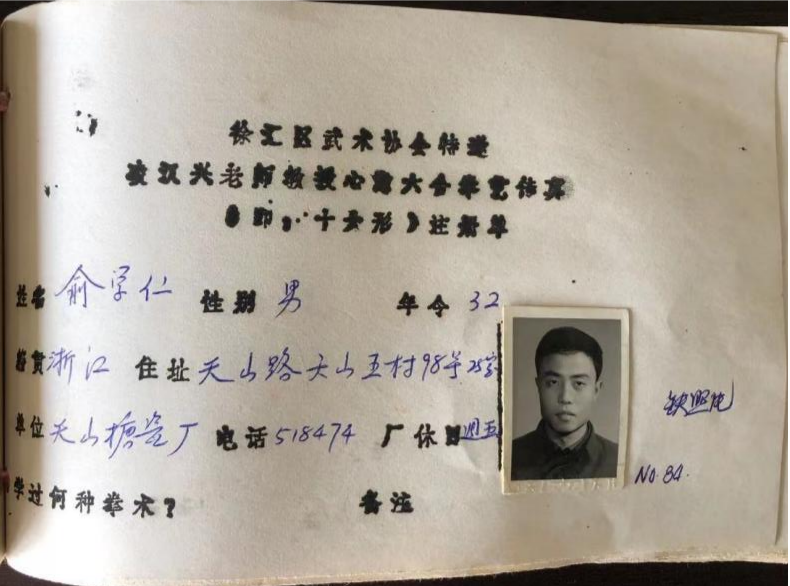 徐汇区武术协会特邀
凌汉兴老师教授心意六合拳艺传真
(即：十大形)注册单
姓名 俞学仁 性别 男 年令 32
籍贯 浙江 住址 天山路天山五村98号25室
单位 天山搪瓷厂 电话 518474 厂休日 週五
缺照片
No. 84.
学过何种拳术? 备注